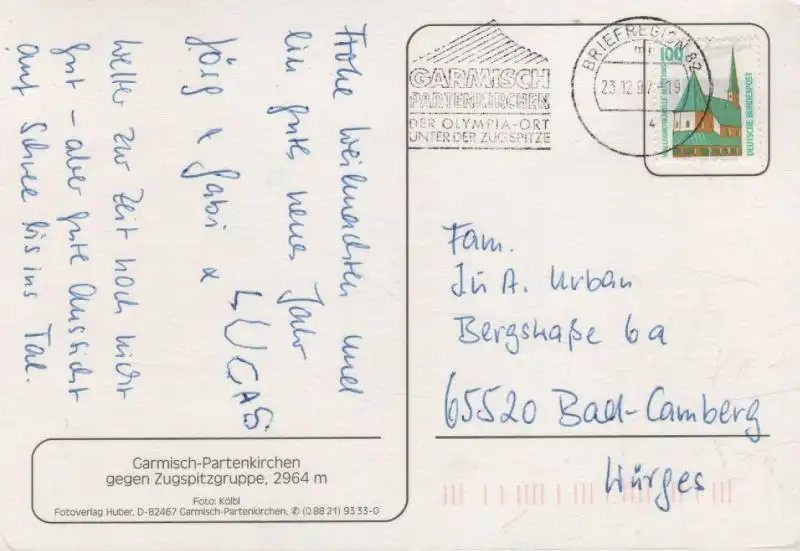 Frohe Weihnachten und
ein gutes neues Jahr
Jörg & Gabi &
LUCAS
Wetter zur Zeit noch nicht
gut – aber gute Aussicht
auf Schnee bis ins Tal.
Garmisch-Partenkirchen
gegen Zugspitzgruppe, 2964 m
Foto: Kölbl
Fotoverlag Huber, D-82467 Garmisch-Partenkirchen, ✆ (0 88 21) 93 33-0
GARMISCH
PARTENKIRCHEN
DER OLYMPIA-ORT
UNTER DER ZUGSPITZE
BRIEFREGION 82
23.12.97-19
100
WALLFAHRTSKAPELLE ALTÖTTING
DEUTSCHE BUNDESPOST
Fam.
J u A. Urban
Bergstraße 6a
65520 Bad-Camberg
Würges